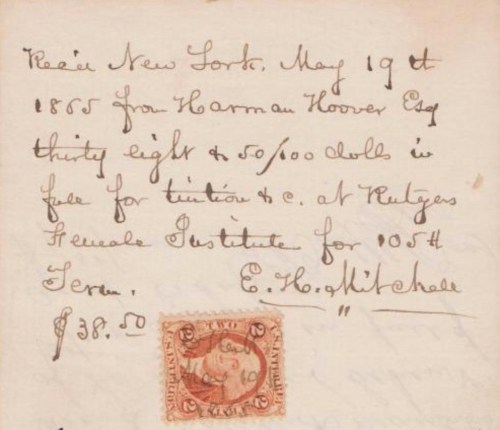 Rec'd New York. May 19th
1865 from Harman Hoover Esq
thirty eight & 50/100 dolls in
full for tuition & c. at Rutgers
Female Institute for 105th
Term. E. H. Mitchell
$38.50 "
TWO
2 2
U.S. INTER. REV.
May 19
2 2